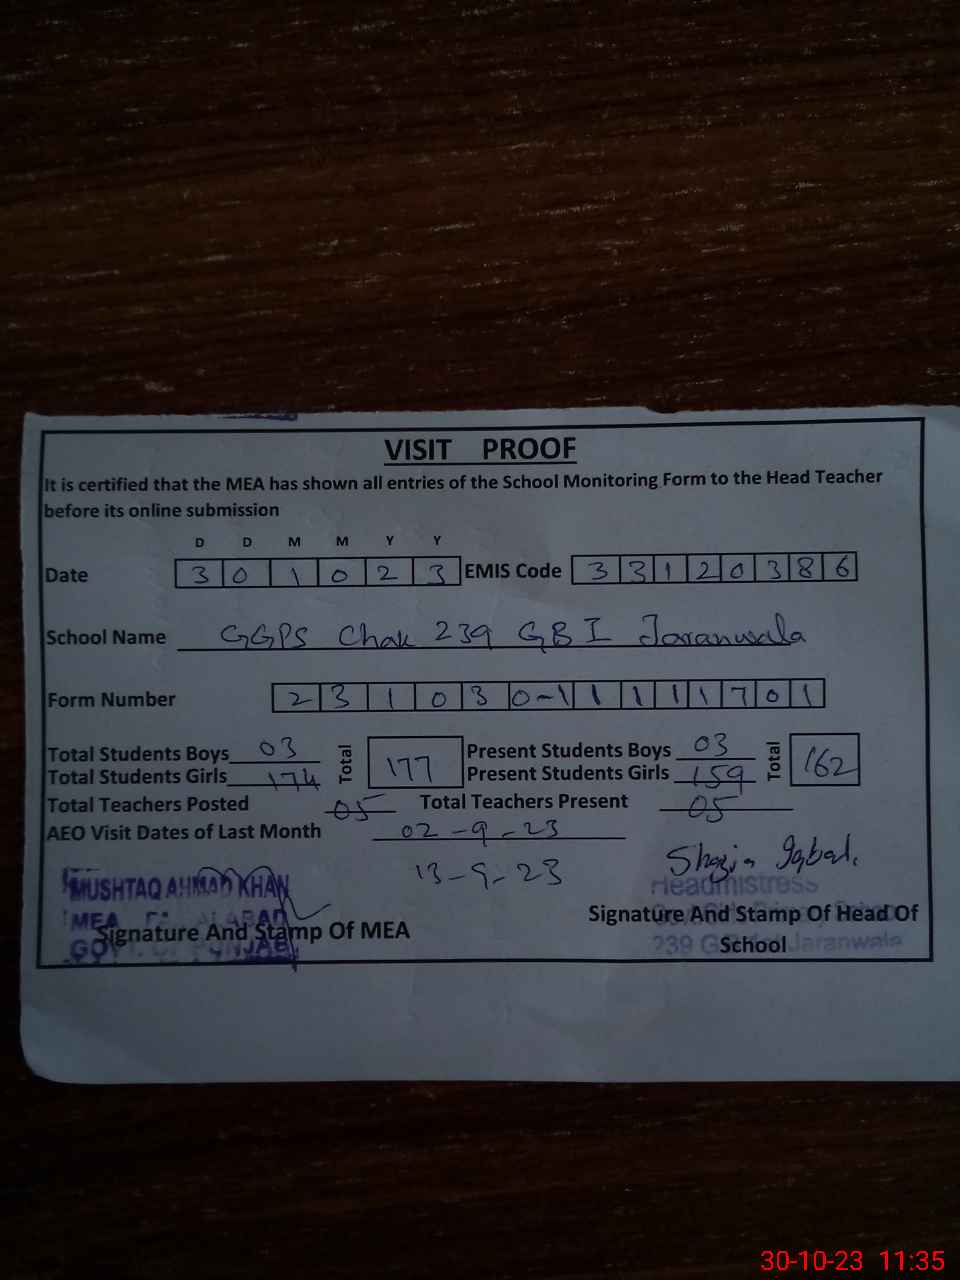 VISIT PROOF
It is certified that the MEA has shown all entries of the School Monitoring Form to the Head Teacher
before its online submission
D D M M Y Y
Date 3 0 1 0 2 3 EMIS Code 3 3 1 2 0 3 8 6
School Name GGPS Chak 239 GB I Jaranwala
Form Number 2 3 1 0 3 0-1 1 1 1 7 0 1
Total Students Boys 03 Total 177 Present Students Boys 03 Total 162
Total Students Girls 174 Present Students Girls 159
Total Teachers Posted 05 Total Teachers Present 05
AEO Visit Dates of Last Month 02-9-23
13-9-23
Shazia Iqbal
MUSHTAQ AHMAD KHAN
Headmistress
MEA
Signature And Stamp Of MEA
Signature And Stamp Of Head Of
School
GOVT. OF PUNJAB
239 Jaranwala
30-10-23 11:35